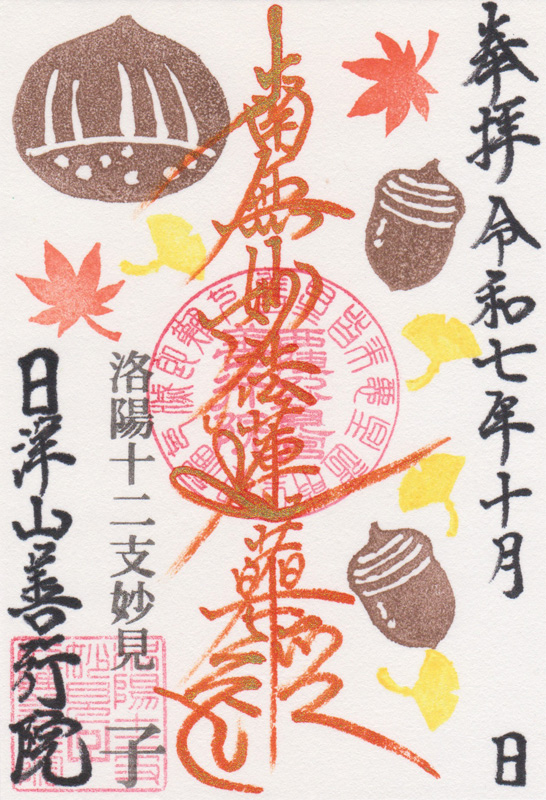 奉拝 令和七年十月 日
南無妙法蓮華経
洛陽十二支妙見 子
日洋山善行院